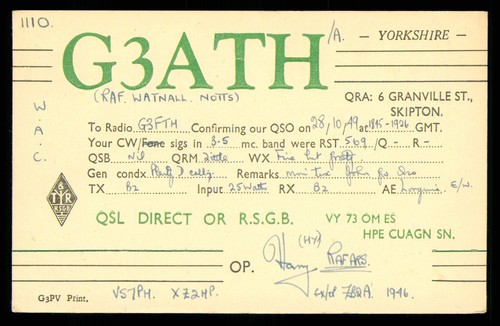 1110.
G3ATH/A. — YORKSHIRE —
(RAF. WATNALL. NOTTS)
W.A.C.
QRA: 6 GRANVILLE ST., SKIPTON.
To Radio G3FTH Confirming our QSO on 28/10/49 at 1845-1926 GMT.
Your CW/Fone sigs in 3.5 mc. band were RST 569 /Q - R -
QSB Nil QRM little WX Fine but
Gen condx Remarks John QSO
TX B2 Input 25 Watts RX B2 AE E/W.
RSGB
QSL DIRECT OR R.S.G.B. VY 73 OM ES
HPE CUAGN SN.
OP. Harry (HY) RAFARS.
G3PV Print. VS7PH. XZ2HP. ex/op ZB2A. 1946.